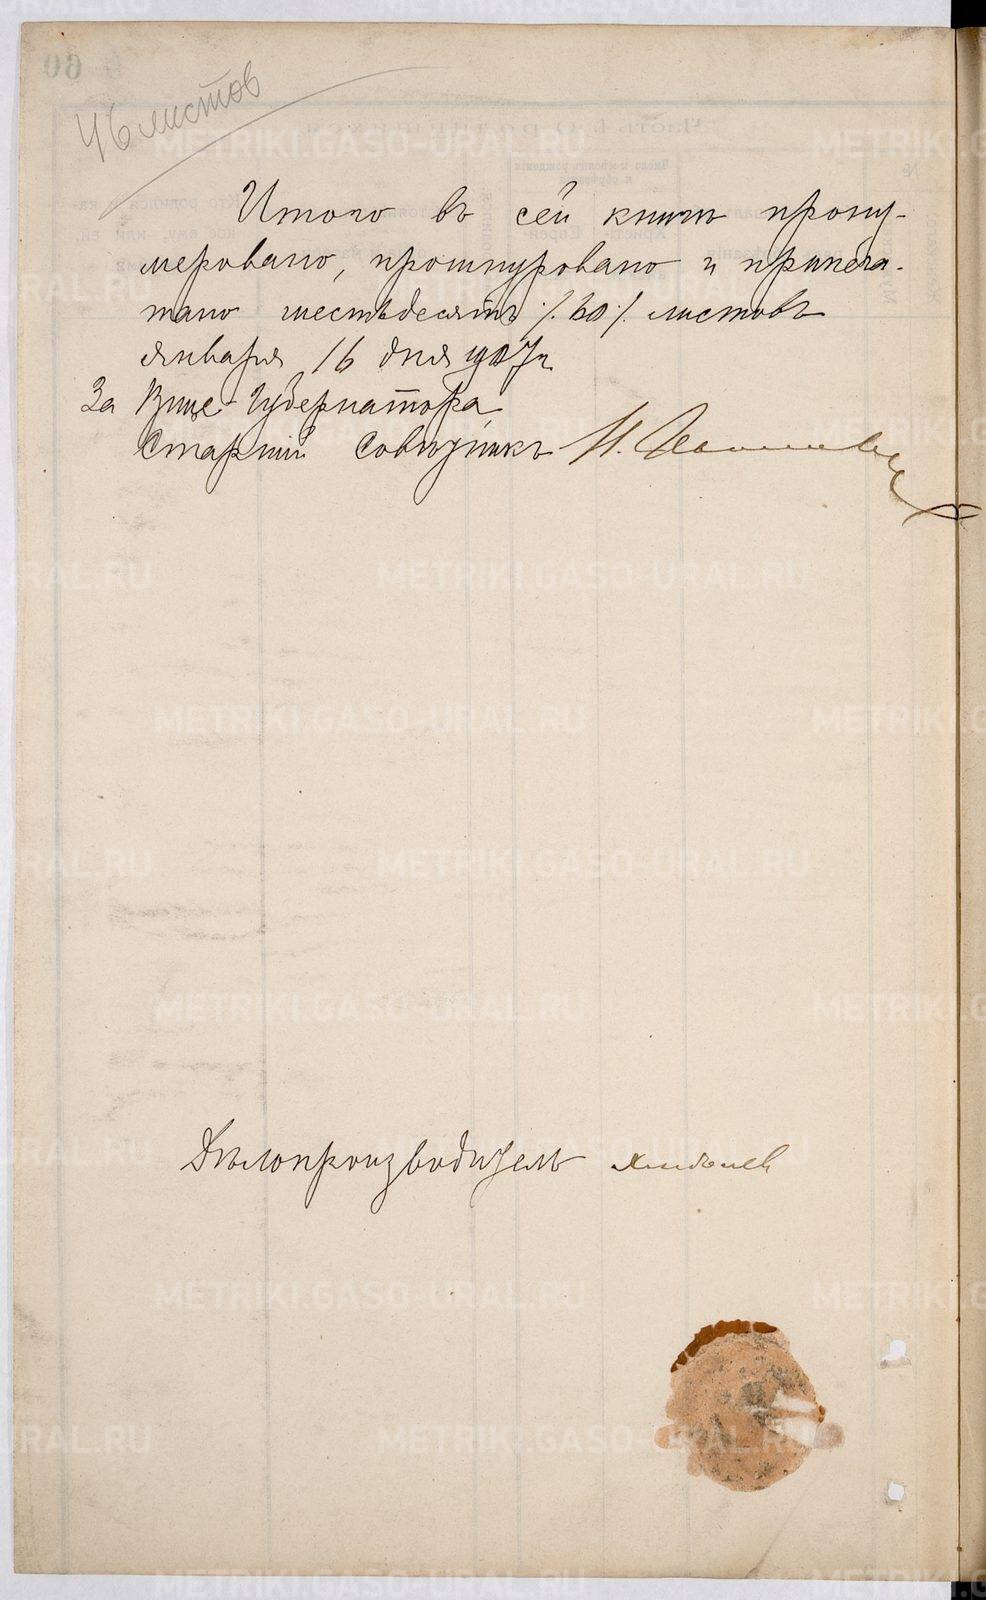 46 листов
Итого въ сей книгѣ прону-
меровано, прошнуровано и припеча-
тано шестьдесятъ /.60/. листовъ
января 16 дня 1907 г.
За Вице-Губернатора
Старшiй Совѣтникъ Н.
Дѣлопроизводитель
METRIKI.GASO-URAL.RU